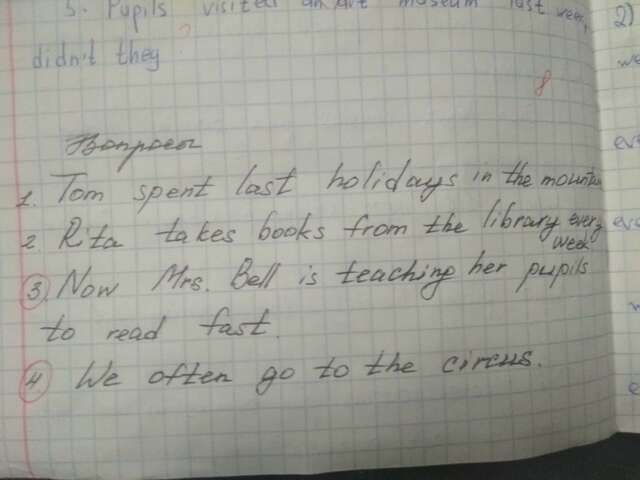 5. Pupils visited an art museum last week,
didn't they ?
8
Вопросы
1. Tom spent last holidays in the mountains
2. Rita takes books from the library every
week
3. Now Mrs. Bell is teaching her pupils
to read fast.
4. We often go to the circus.
2)
we
eve
eve
e